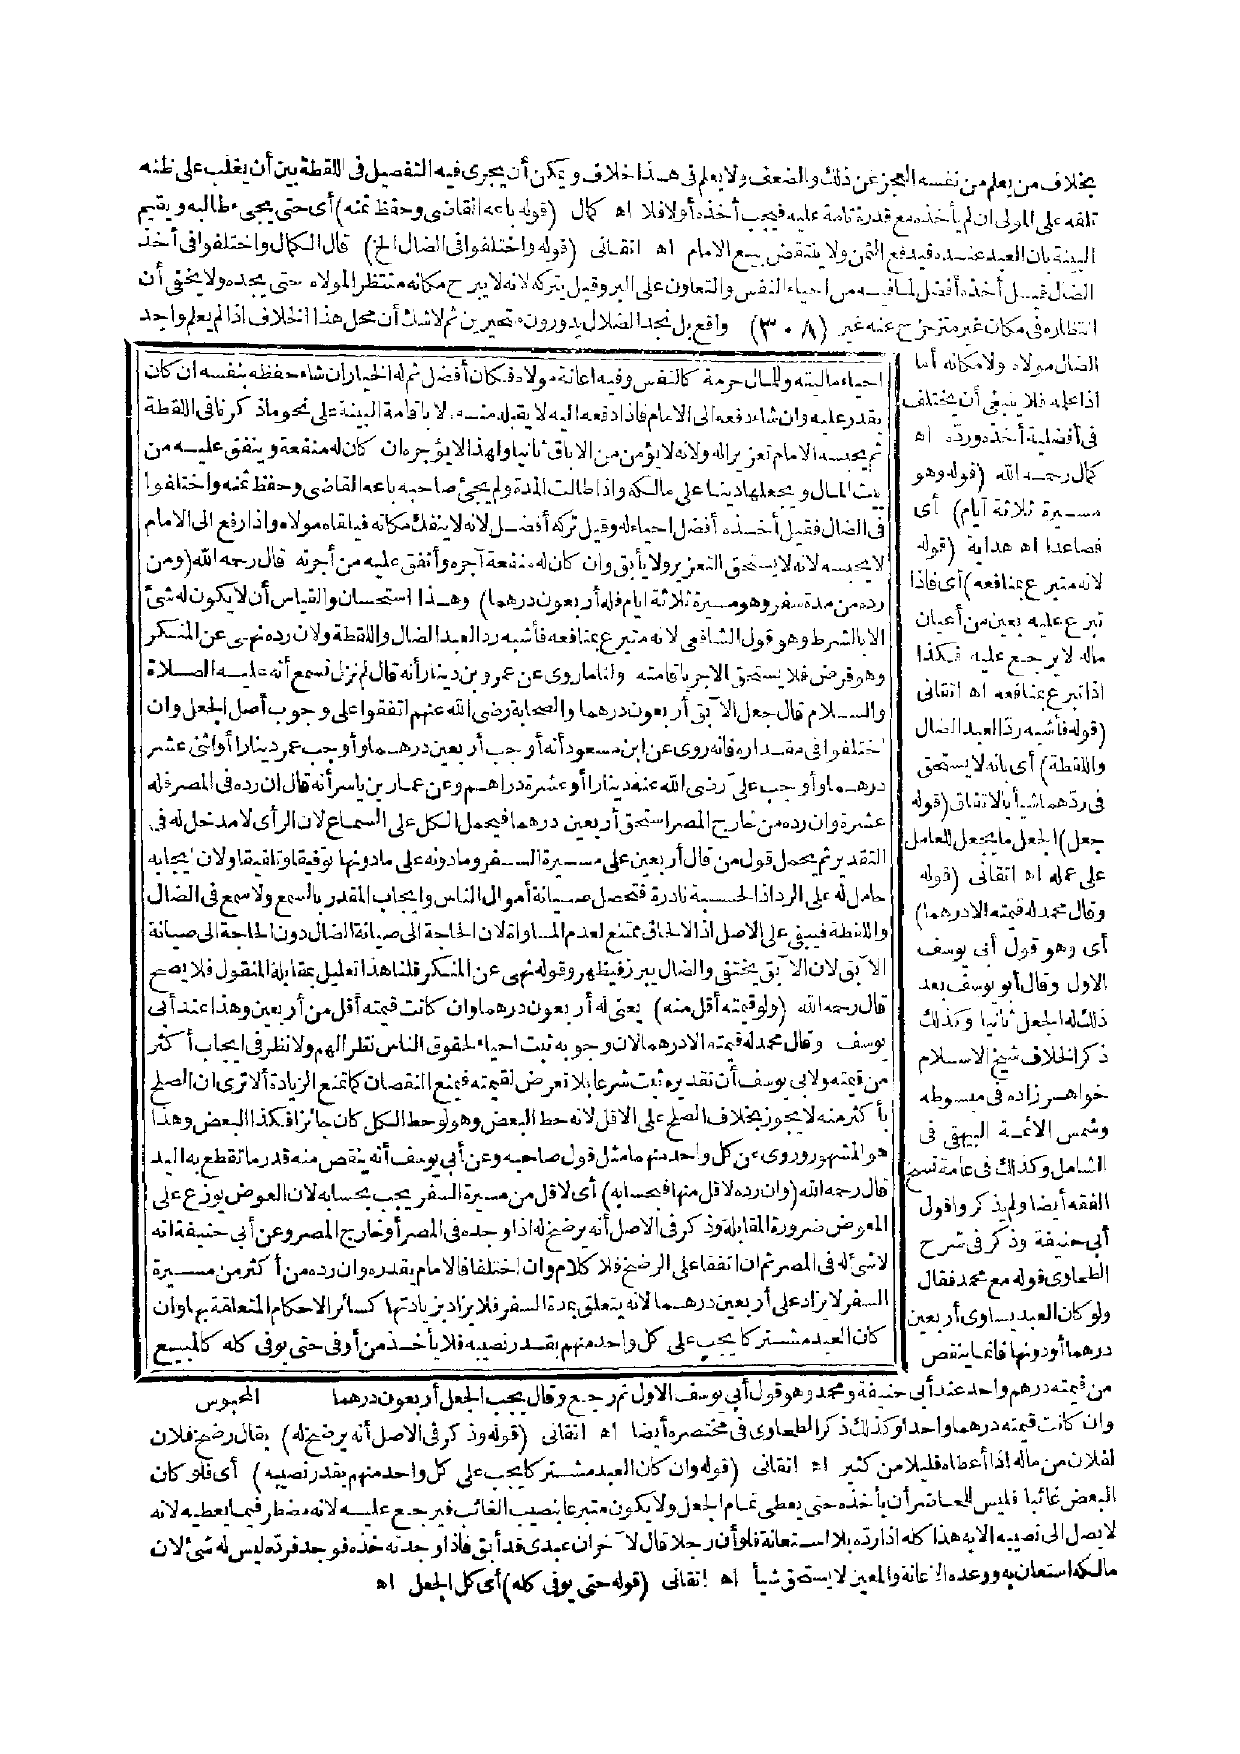 بخلاف من يعلم من نفسه العجز عن ذلك والضعف ولا يعلم فى هذا خلاف ويمكن أن يجرى فيه التفصيل فى اللقطة بين أن يغلب على ظنه
تلفه على المولى ان لم يأخذه مع قدرة تامة عليه فيجب أخذه أولا فلا اه كمال (قوله باعه القاضى وحفظ ثمنه) أى حتى يجىء طالبه ويقيم
البينة بان العبد عنده فيدفع الثمن ولا ينتقض بيع الامام اه اتقانى (قوله واختلفوا فى الضال الخ) قال الكمال واختلفوا فى أخذ
الضال قيل أخذه أفضل لما فيه من احياء النفس والتعاون على البر وقيل يتركه لانه لا يبرح مكانه منتظرا لمولاه حتى يجده ولا يخفى أن
انتظاره فى مكان غير متزحزح عنه غير (٣٠٨) واقع بل نجد الضلال يدورون متحيرين ثم لا شك أن محل هذا الخلاف اذا لم يعلم واجد
الضال مولاه ولا مكانه أما
اذا علمه فلا ينبغى أن يختلف
فى أفضلية أخذه وردّه اه
كمال رحمه الله (قوله وهو
مسيرة ثلاثة أيام) أى
فصاعدا اه هداية (قوله
لانه متبرع بمنافعه) أى فاذا
تبرع عليه بعين من أعيان
ماله لا يرجع عليه فكذا
اذا تبرع بمنافعه اه اتقانى
(قوله فأشبه ردّ العبد الضال
واللقطة) أى بانه لا يستحق
فى ردّهما شيأ بالاتفاق (قوله
جعل) الجعل ما يجعل للعامل
على عمله اه اتقانى (قوله
وقال محمد له قيمته الا درهما)
أى وهو قول أبى يوسف
الاول وقال أبو يوسف بعد
ذلك له الجعل ثانيا وكذلك
ذكر الخلاف شيخ الاسلام
خواهر زاده فى مبسوطه
وشمس الائمة البيهقى فى
الشامل وكذلك فى عامة نسخ
الفقه أيضا ولم يذكروا قول
أبى حنيفة وذكر فى شرح
الطحاوى قوله مع محمد فقال
ولو كان العبد يساوى أربعين
درهما أو دونها فانما ينقص
احياء ماليته وللمال حرمة كالنفس وفيه اعانة مولاه فكان أفضل ثم له الخيار ان شاء حفظه بنفسه ان كان
يقدر عليه وان شاء دفعه الى الامام فاذا دفعه اليه لا يقبله منه الا باقامة البينة على نحو ما ذكرنا فى اللقطة
ثم يحبسه الامام تعزيرا له ولانه لا يؤمن من الاباق ثانيا ولهذا لا يؤجره ان كان له منفعة وينفق عليه من
بيت المال ويجعلها دينا على مالكه واذا طالت المدة ولم يجئ صاحبه باعه القاضى وحفظ ثمنه واختلفوا
فى الضال فقيل أخذه أفضل احياء له وقيل تركه أفضل لانه لا ينفك مكانه فيلقاه مولاه واذا رفع الى الامام
لا يحبسه لانه لا يستحق التعزير ولا يأبق وان كان له منفعة آجره وأنفق عليه من أجرته قال رحمه الله (ومن
رده من مدة سفر وهو مسيرة ثلاثة ايام فله أربعون درهما) وهذا استحسان والقياس أن لا يكون له شئ
الا بالشرط وهو قول الشافعى لانه متبرع بمنافعه فأشبه رد العبد الضال واللقطة ولان رده نهى عن المنكر
وهو فرض فلا يستحق الاجر باقامته ولنا ما روى عن عمرو بن دينار أنه قال لم نزل نسمع أنه عليه الصلاة
والسلام قال جعل الآبق أربعون درهما والصحابة رضى الله عنهم اتفقوا على وجوب أصل الجعل وان
اختلفوا فى مقداره فانه روى عن ابن مسعود أنه أوجب أربعين درهما وأوجب عمر دينارا أو اثنى عشر
درهما وأوجب على رضى الله عنه دينارا أو عشرة دراهم وعن عمار بن ياسر أنه قال ان رده فى المصر فله
عشرة وان رده من خارج المصر استحق أربعين درهما فيحمل الكل على السماع لان الرأى لا مدخل له فى
التقدير ثم يحمل قول من قال أربعين على مسيرة السفر وما دونه على ما دونها توفيقا وتلفيقا ولان ايجابه
حامل له على الرد اذ الحسبة نادرة فتحصل صيانة أموال الناس وايجاب المقدر بالسمع ولا سمع فى الضال
واللقطة فيبقى على الاصل اذ الالحاق ممتنع لعدم المساواة لان الحاجة الى صيانة الضال دون الحاجة الى صيانة
الآبق لان الآبق يختفى والضال يبرز فيظهر وقوله نهى عن المنكر قلنا هذا تعليل بمقابلة المنقول فلا يصح
قال رحمه الله (ولو قيمته أقل منه) يعنى له أربعون درهما وان كانت قيمته أقل من أربعين وهذا عند أبى
يوسف وقال محمد له قيمته الا درهما لان وجوبه ثبت احياء لحقوق الناس نظرا لهم ولا نظر فى ايجاب أكثر
من قيمته ولابى يوسف أن تقديره ثبت شرعا بلا تعرض لقيمته فيمنع النقصان كما تمنع الزيادة ألا ترى ان الصلح
بأكثر منه لا يجوز بخلاف الصلح على الاقل لانه حط البعض وهو لو حط الكل كان جائزا فكذا البعض وهذا
هو المشهور وروى عن كل واحد منهما مثل قول صاحبه وعن أبى يوسف أنه ينقص منه قدر ما تقطع به اليد
قال رحمه الله (وان رده لاقل منها فبحسابه) أى لاقل من مسيرة السفر يجب بحسابه لان العوض يوزع على
المعوض ضرورة المقابلة وذكر فى الاصل أنه يرضخ له اذا وجده فى المصر أو خارج المصر وعن أبى حنيفة انه
لا شئ له فى المصر ثم ان اتفقا على الرضخ فلا كلام وان اختلفا فالامام يقدره وان رده من أكثر من مسيرة
السفر لا يزاد على أربعين درهما لانه يتعلق بمدة السفر فلا يزاد بزيادتها كسائر الاحكام المتعلقة بها وان
كان العبد مشتركا يجب على كل واحد منهم بقدر نصيبه فلا يأخذ من أوفى حتى يوفى كله كالمبيع
المحبوس
من قيمته درهم واحد عند أبى حنيفة ومحمد وهو قول أبى يوسف الاول ثم رجع وقال يجب الجعل أربعون درهما
وان كانت قيمته درهما واحدا وكذلك ذكر الطحاوى فى مختصره أيضا اه اتقانى (قوله وذكر فى الاصل أنه يرضخ له) يقال رضخ فلان
لفلان من ماله اذا أعطاه قليلا من كثير اه اتقانى (قوله وان كان العبد مشتركا يجب على كل واحد منهم بقدر نصيبه) أى فلو كان
البعض غائبا فليس للحاضر أن يأخذه حتى يعطى تمام الجعل ولا يكون متبرعا بنصيب الغائب فيرجع عليه لانه مضطر فيما يعطيه لانه
لا يصل الى نصيبه الا به هذا كله اذا رده بلا استعانة فلو أن رجلا قال لآخر ان عبدى قد أبق فاذا وجدته خذه فوجد فرده ليس له شئ لان
مالكه استعان به ووعده الاعانة والمعين لا يستحق شيأ اه اتقانى (قوله حتى يوفى كله) أى كل الجعل اه